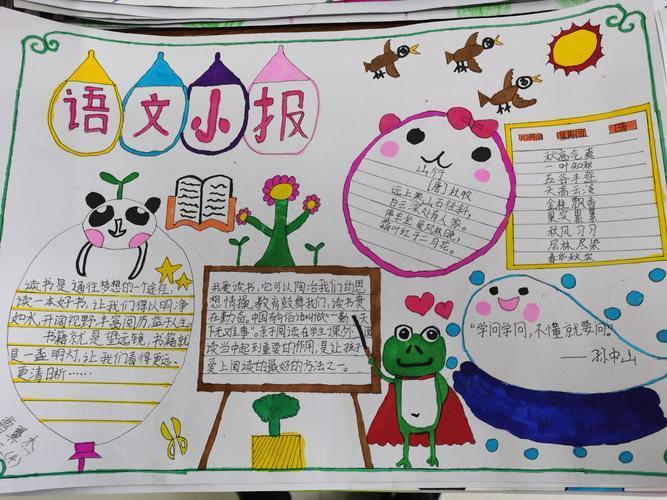 语文小报
山行
[唐]杜牧
远上寒山石径斜,
白云深处有人家。
停车坐爱枫林晚,
霜叶红于二月花。
秋高气爽
一叶知秋
五谷丰登
天高云淡
金桂飘香
果实累累
秋风习习
层林尽染
春华秋实
读书是通往梦想的一个途径,
读一本好书,让我们得以明净
如水,开阔视野,丰富阅历,益于人生。
书籍就是望远镜,书籍就
是一盏明灯,让我们看得更远、
更清晰……
我要读书,它可以陶冶我们的思
想情操,教育鼓舞我们,读书贵
在勤奋,中国有句俗话叫做"勤,天
下无难事"。亲子阅读在学生课外阅
读当中起到重要的作用,是让孩子
爱上阅读的最好的方法之一。
"学问学问,不懂就要问。"
——孙中山